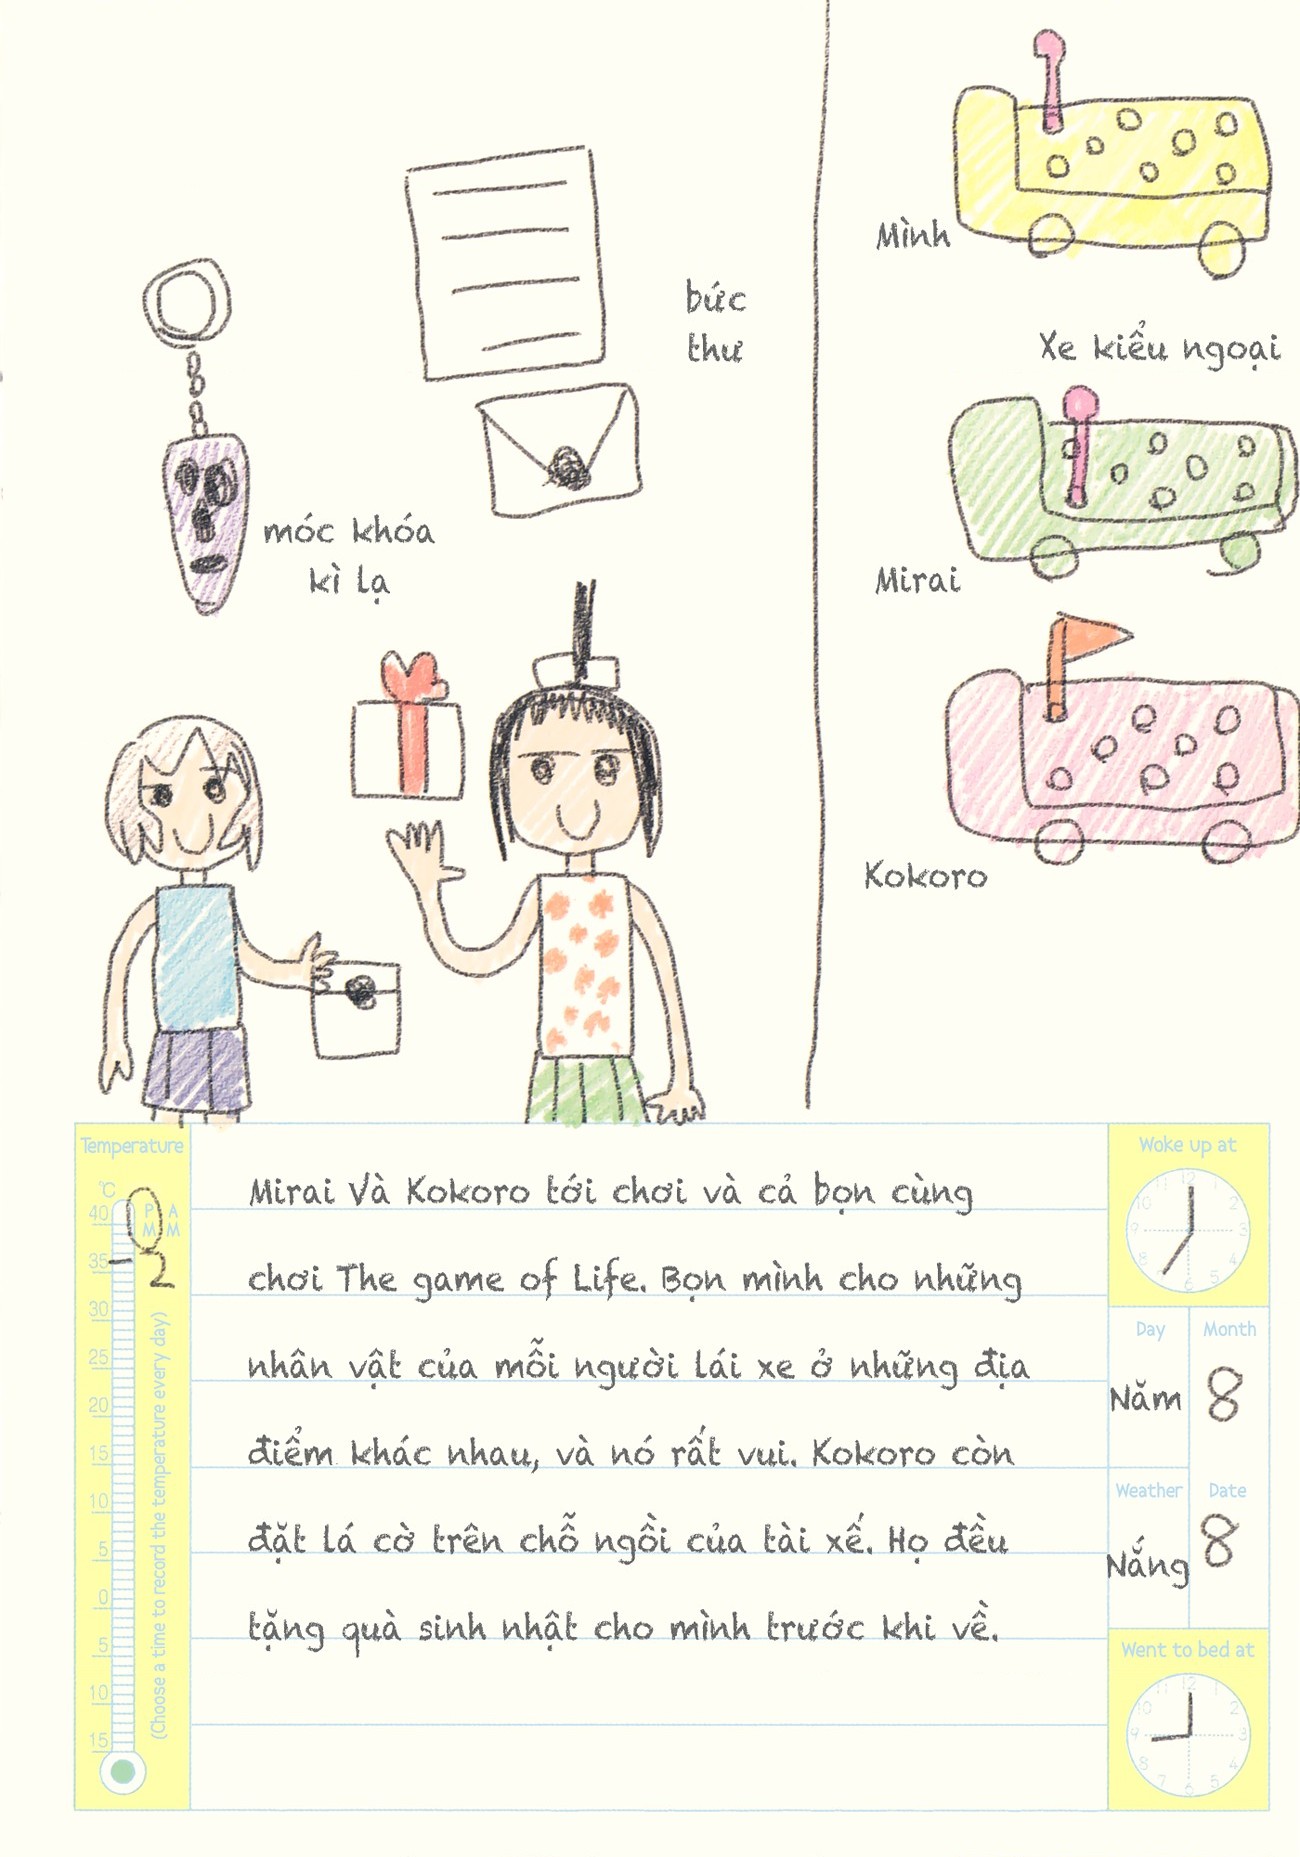 Mình
bức
thư
Xe kiểu ngoại
móc khóa
kì lạ
Mirai
Kokoro
Temperature
℃
40
35
30
25
20
15
10
5
0
5
10
15
P A
M M
2
(Choose a time to record the temperature every day)
Mirai Và Kokoro tới chơi và cả bọn cùng
chơi The game of Life. Bọn mình cho những
nhân vật của mỗi người lái xe ở những địa
điểm khác nhau, và nó rất vui. Kokoro còn
đặt lá cờ trên chỗ ngồi của tài xế. Họ đều
tặng quà sinh nhật cho mình trước khi về.
Woke up at
12
1
2
3
4
5
6
7
8
9
10
11
Day Month
Năm 8
Weather Date
Nắng 8
Went to bed at
12
1
2
3
4
5
6
7
8
9
10
11